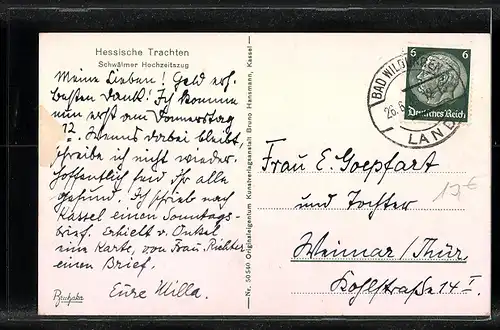 Hessische Trachten
Schwälmer Hochzeitszug
Meine Lieben! Geld erh.
besten Dank! Ich komme
nun erst am Donnerstag
12 . Wenns dabei bleibt,
schreibe ich nicht wieder.
Hoffentlich seid Ihr alle
gesund. Ich schrieb nach
Kassel einen Sonntags-
brief. Erhielt v. Onkel
eine Karte, von Frau Richter
einen Brief.
Eure Milla.
No. 50540 Originaleigentum Kunstverlagsanstalt Bruno Hansmann, Kassel
6 6
Deutsches Reich
BAD WILDUNGEN
26.6.
LAND
Frau E. Goepfart
und Tochter
Weimar/Thür.
Kohlstraße 14 I
13€